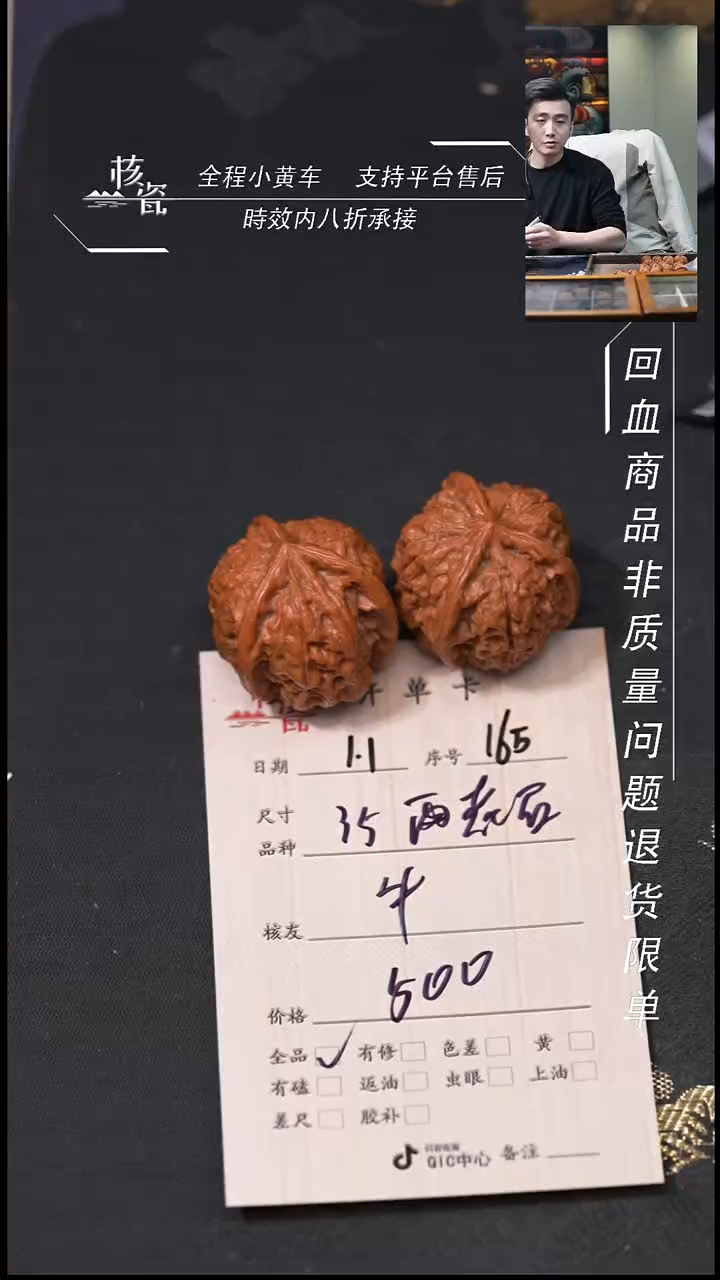 核瓷
全程小黄车 支持平台售后
時效内八折承接
回血商品非质量问题退货限单
瓷 开单卡
日期 1.1 序号 165
尺寸 35
品种
核友 牛
价格 500
全品 ✓ 有修 色差 黄
有磕 返油 虫眼 上油
差尺 胶补
QIC中心 备注